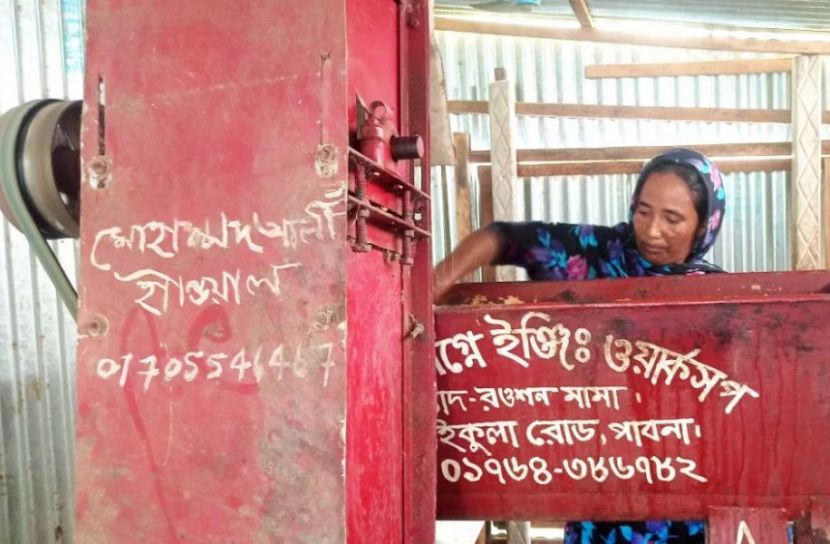 মোহাম্মদ আলী
হান্ডয়াল
01705546467
গ্নে ইঞ্জিঃ ওয়ার্কসপ
াদ-রওশন মামা।
ইকুলা রোড, পাবনা।
০১৭৬৪-৩৮৬৭৮২